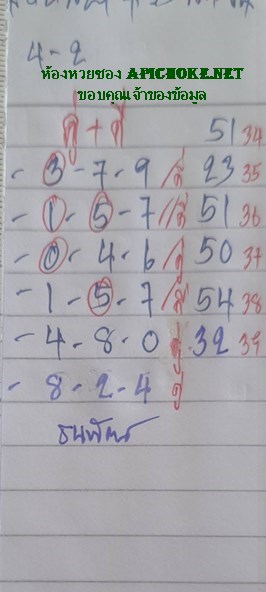 4-2
ห้องหวยซอง APICHOKE.NET
ขอบคุณเจ้าของข้อมูล
คู่+คี่ 51 34
- 3-7-9 /คี่ 23 35
- 1-5-7 //คี่ 51 36
- 0-4-6 /คู่ 50 37
- 1-5-7 /คี่ 54 38
- 4-8-0 คู่ 32 39
- 8-2-4 คู่
ธนพัฒน์